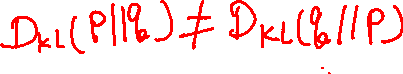 D_KL(P||q) ≠ D_KL(q||P)